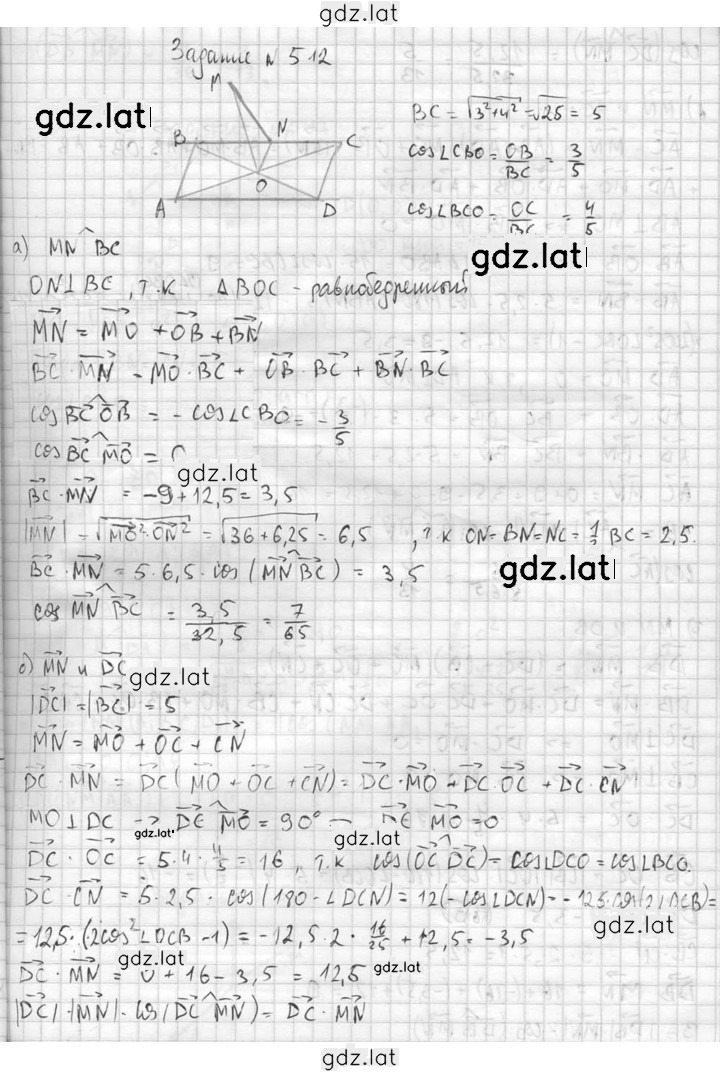 gdz.lat
Задание N 512
M
gdz.lat
B N C
O
A D
BC = √3²+4² = √25 = 5
cos∠CBO = OB/BC = 3/5
cos∠BCO = OC/BC = 4/5
gdz.lat
а) MN^BC
ON⊥BC, т.к △BOC - равнобедренный
MN = MO + OB + BN
BC · MN = MO · BC + OB · BC + BN · BC
cos BC^OB = - cos∠CBO = - 3/5
cos BC^MO = 0
gdz.lat
BC · MN = -9 + 12,5 = 3,5
|MN| = √MO²·ON² = √36+6,25 = 6,5 , т.к ON = BN = NC = 1/2 BC = 2,5.
BC · MN = 5 · 6,5 · cos(MN^BC) = 3,5
gdz.lat
cos MN^BC = 3,5/32,5 = 7/65
б) MN и DC
gdz.lat
|DC| = |BC| = 5
MN = MO + OC + CN
DC · MN = DC(MO + OC + CN) = DC · MO + DC · OC + DC · CN
MO⊥DC → DC^MO = 90° — DC MO = 0
gdz.lat
gdz.lat
DC · OC = 5·4·4/5 = 16, т.к cos(OC^DC) = cos∠DCO = cos∠BCO.
DC · CN = 5·2,5 · cos(180-∠DCN) = 12(-cos∠DCN) = -12,5·cos(2∠DCB) =
gdz.lat
= 12,5·(2cos²∠DCB - 1) = -12,5·2·16/25 + 12,5 = -3,5
gdz.lat
DC · MN = 0 + 16 - 3,5 = 12,5
gdz.lat
|DC|·|MN|·cos(DC^MN) = DC · MN
gdz.lat